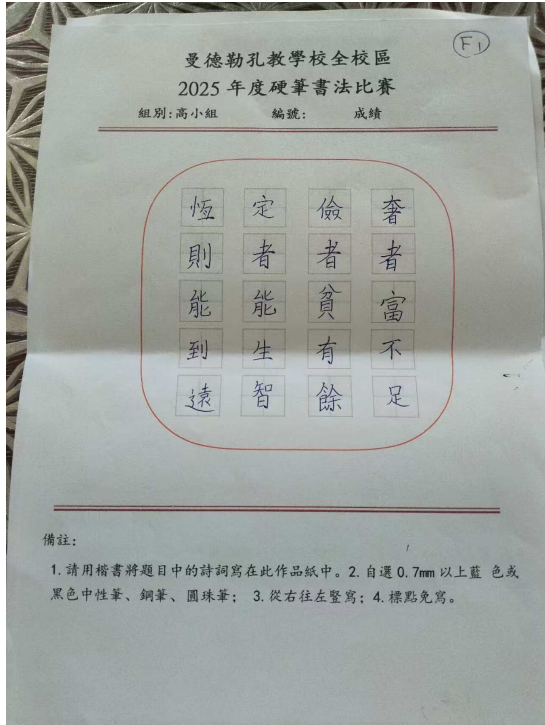 F1
曼德勒孔教學校全校區
2025 年度硬筆書法比賽
組別:高小組 編號: 成績
奢者富不足
儉者貧有餘
定者能生智
恆則能到遠
備註:
1.請用楷書將題目中的詩詞寫在此作品紙中。2.自選0.7mm以上藍 色或
黑色中性筆、鋼筆、圓珠筆; 3.從右往左豎寫;4.標點免寫。